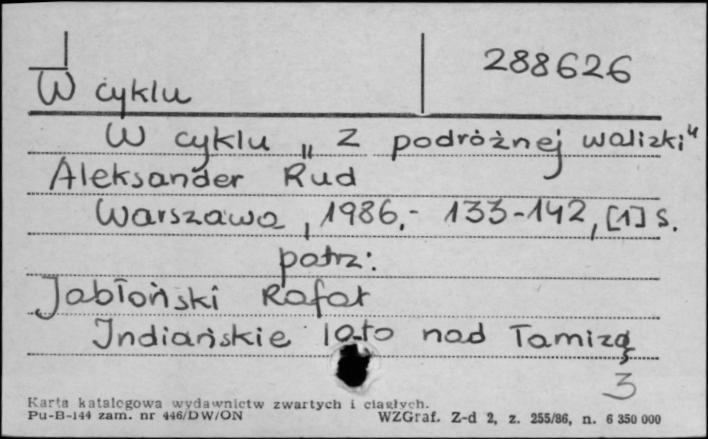 W cyklu
288626
W cyklu „ Z podróżnej walizki"
Aleksander Rud
Warszawa, 1986.- 133-142, [1] s.
patrz:
Jabłoński Rafał
Indiańskie lato nad Tamizą
3
Karta katalogowa wydawnictw zwartych i ciągłych.
Pu-B-144 zam. nr 446/DW/ON
WZGraf. Z-d 2, z. 255/86, n. 6 350 000